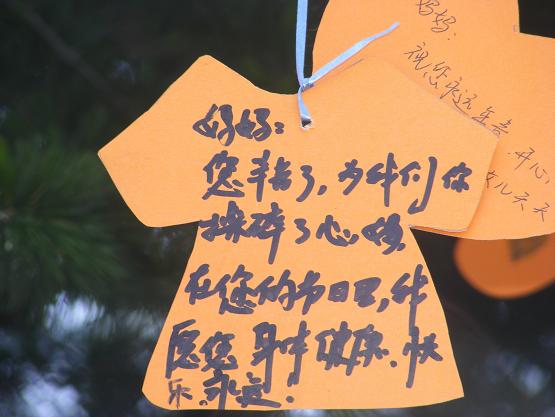 妈妈:
您辛苦了,为我们你
操碎了心,妈.
在您的节日里,我
愿您身体健康.快
乐.永远.
妈妈:
祝您永远年青
开心,
女儿天天